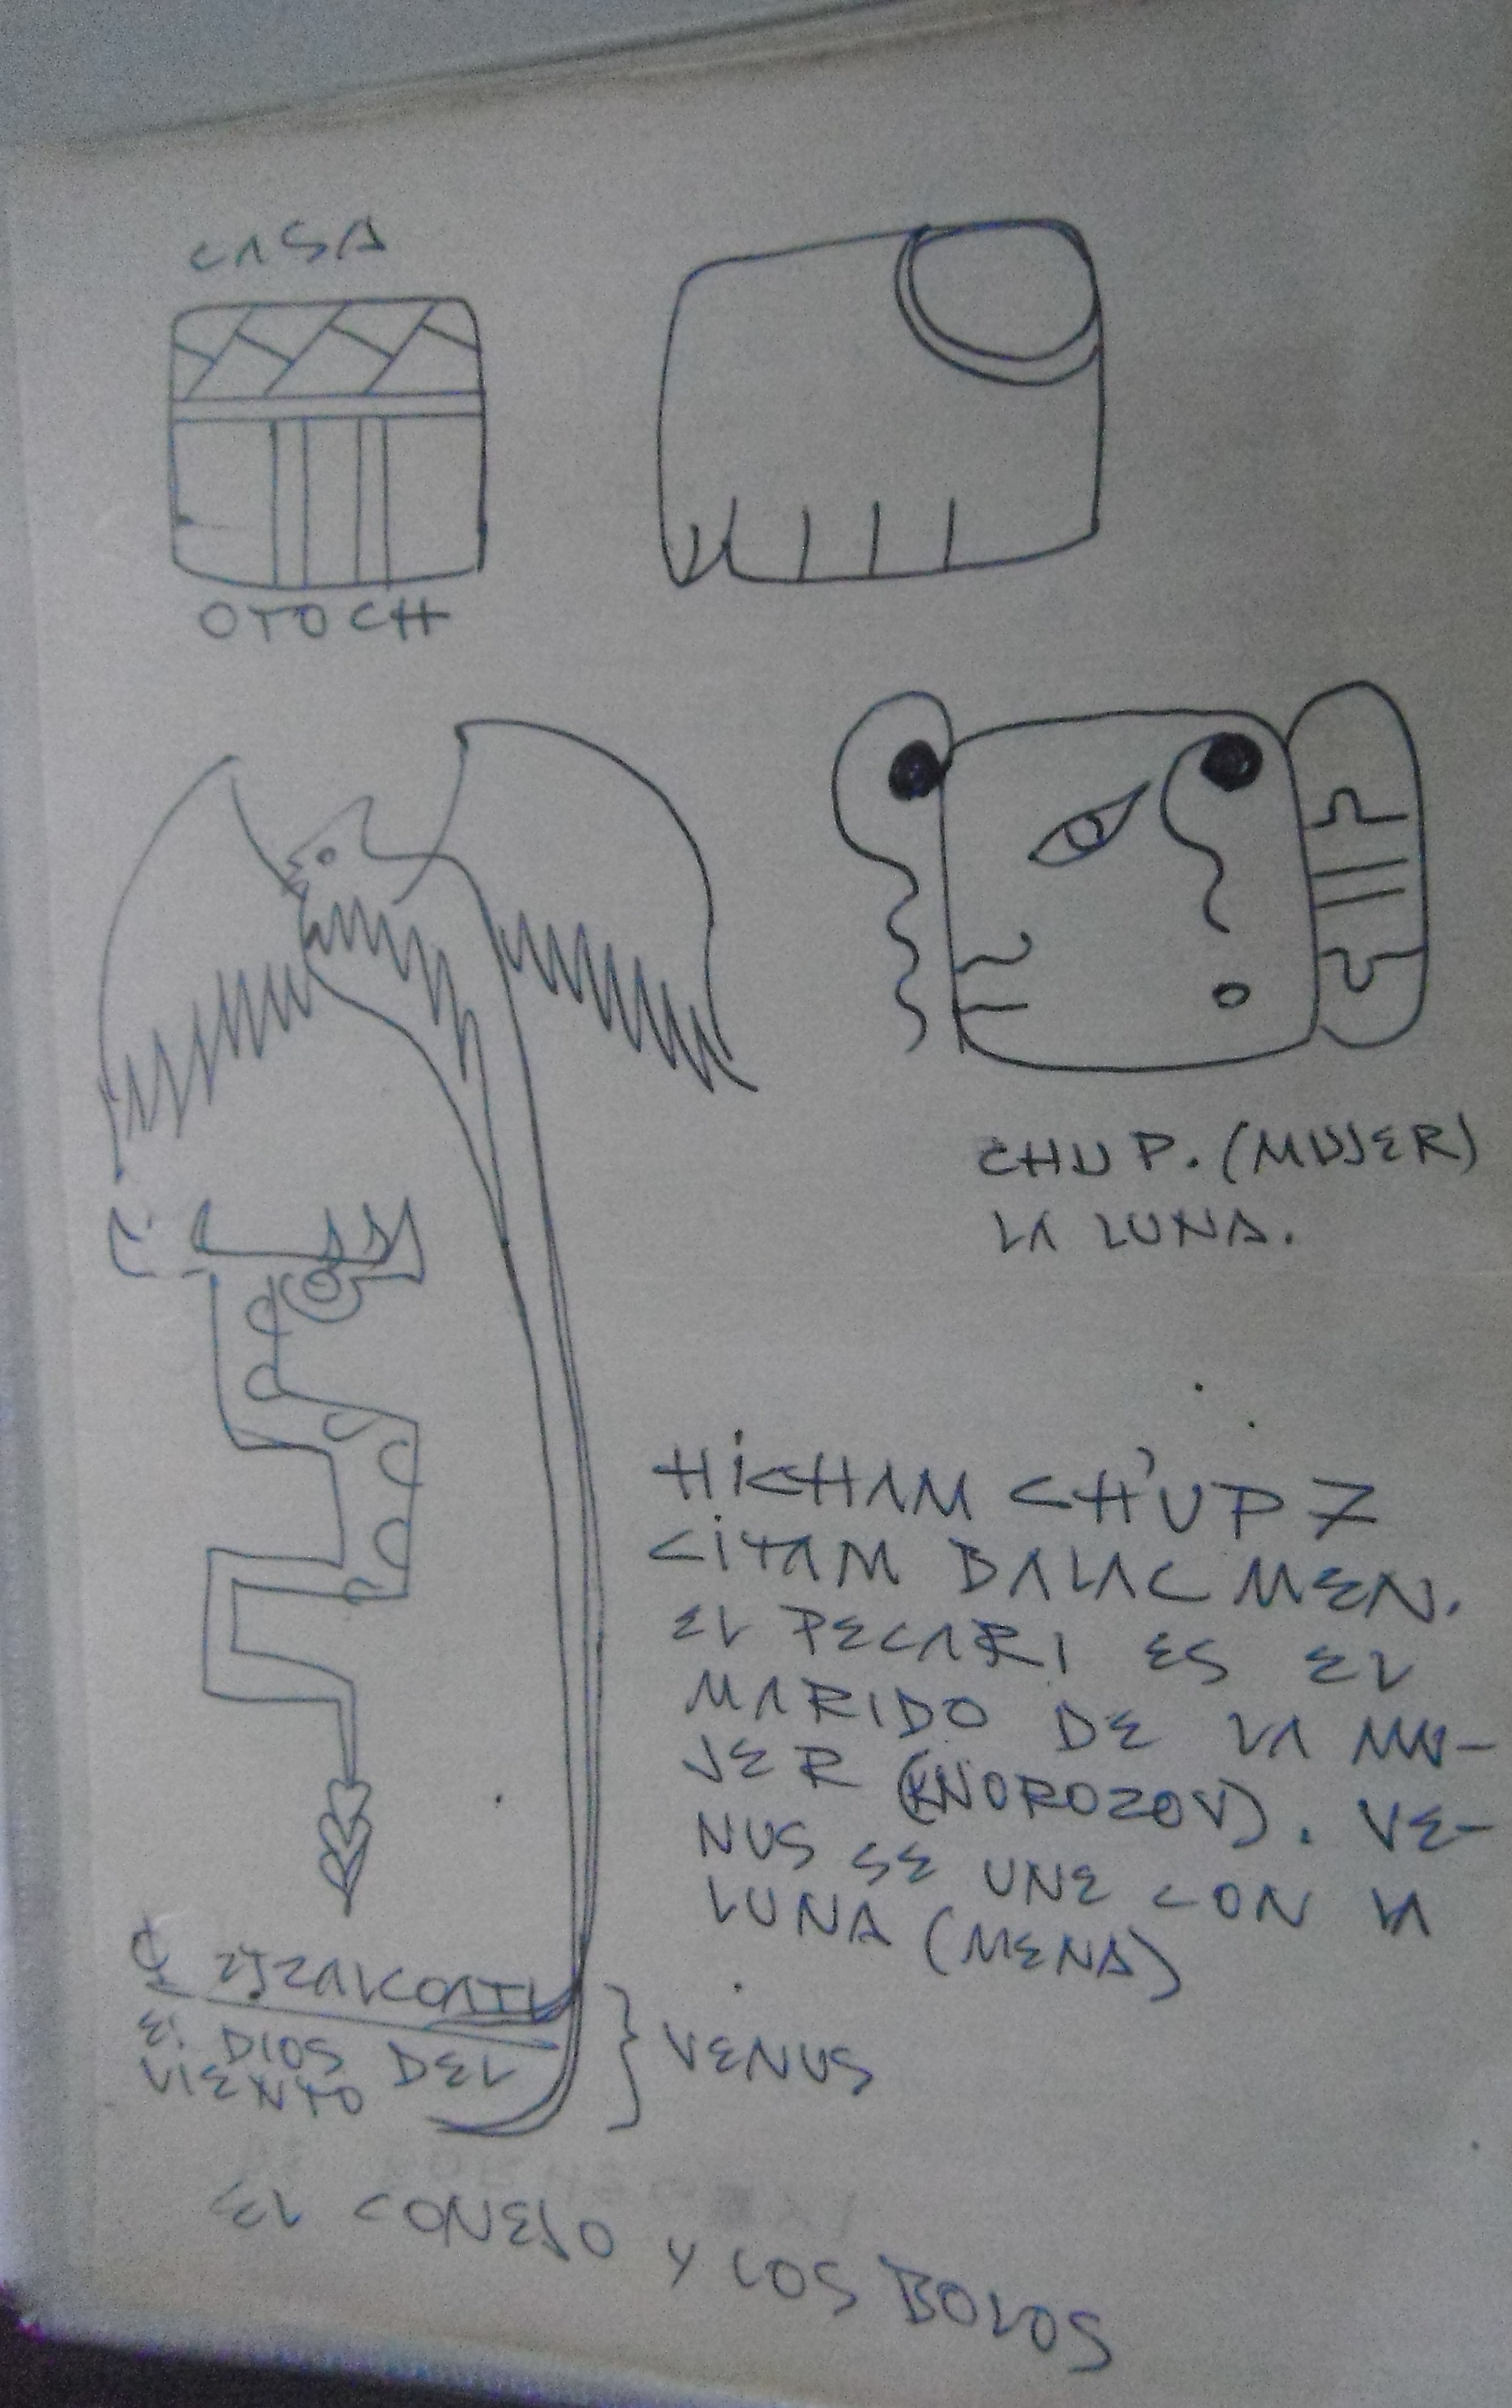 CASA
OTOCH
CHUP. (MUJER)
LA LUNA.
HiCHAM CH'UP 7
CiTAM BALAC MEN.
EL PECARI ES EL
MARIDO DE LA MU-
JER (KNOROZOV). VE-
NUS SE UNE CON LA
LUNA (MENA)
EL DIOS DEL
VIENTO
VENUS
EL CONEJO Y LOS BOLOS